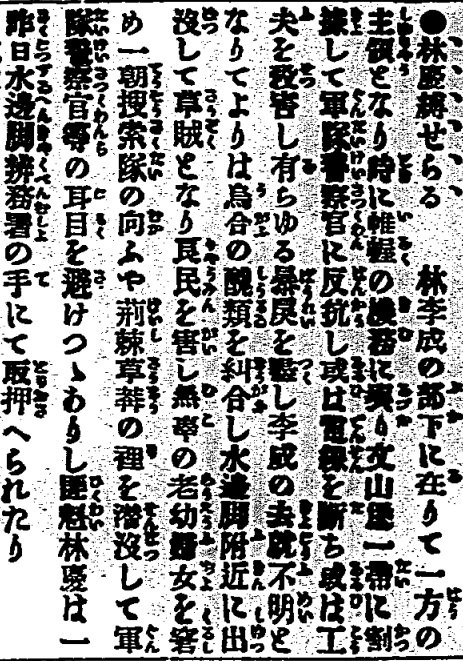 ●林慶縛せらる　林李成の部下に在りて一方の
主領となり時に帷幄の機務に與り文山堡一帶に割
據して軍隊警察官に反抗し或は電線を斷ち或は工
夫を殺害し有らゆる暴戻を盡し李成の去就不明と
なりてよりは烏合の醜類を糾合し水邊脚附近に出
沒して草賊となり良民を害し無辜の老幼婦女を窘
め一朝搜索隊の向ふや荊棘草莽の裡を潜沒して軍
隊警察官等の耳目を避けつゝありし匪魁林慶は一
昨日水邊脚辨務署の手にて取押へられたり